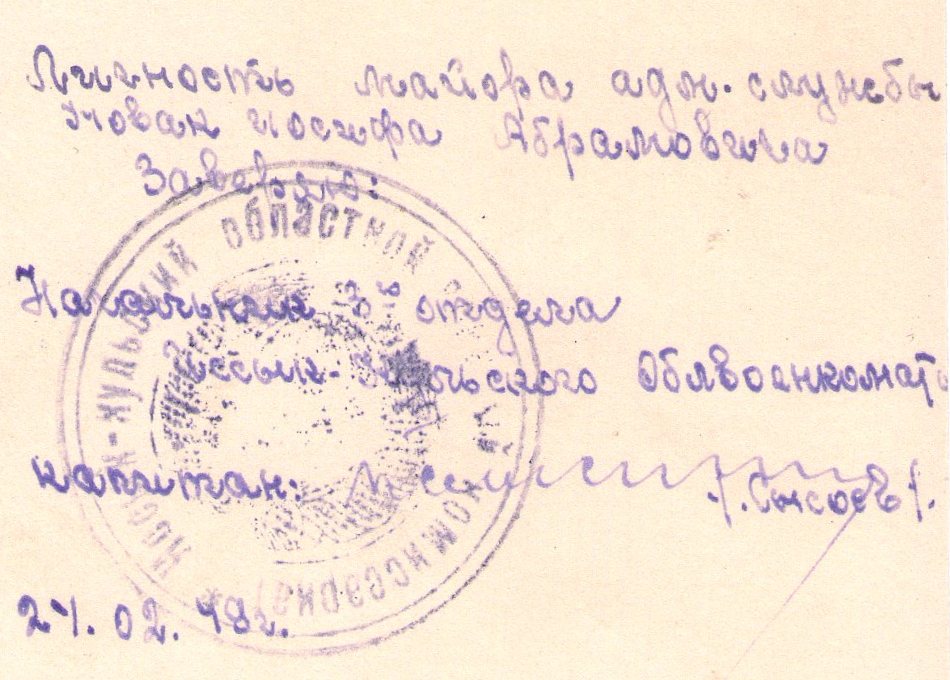 Личность майора адм. службы
Новак Иосифа Абрамовича
Заверяю:
Начальник 3го отдела
Иссык-Кульского Облвоенкомата
капитан: /. Сысоев /.
21. 02. 48г.
Иссык-Кульский областной
комиссариат